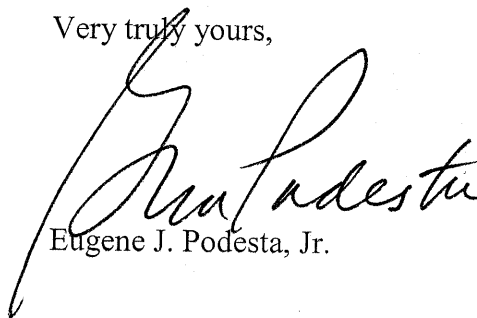 Very truly yours,
Gene Podesta
Eugene J. Podesta, Jr.